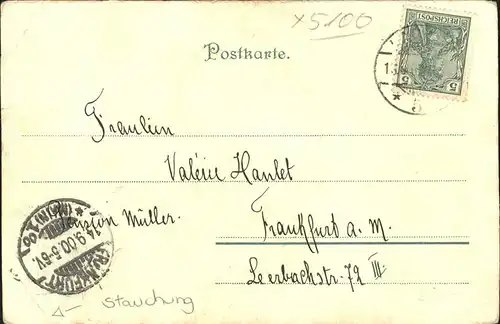 x 5100
Postkarte.
REICHSPOST
5 5
Fräulein
Valérie Hanlet
Pension Müller.
Frankfurt a. M.
Leerbachstr. 72 III
FRANKFURT
14.9.00.5-6V.
Stauchung